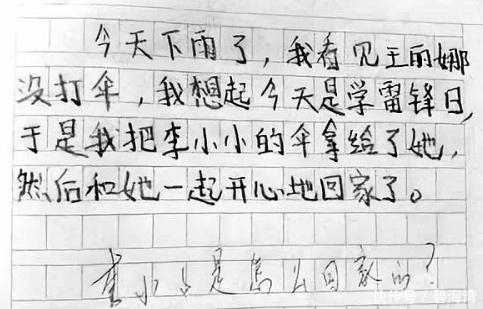 今天下雨了，我看见王丽娜
没打伞，我想起今天是学雷锋日，
于是我把李小小的伞拿给了她，
然后和她一起开心地回家了。
李小小是怎么回家的？
快传号／碧海湾